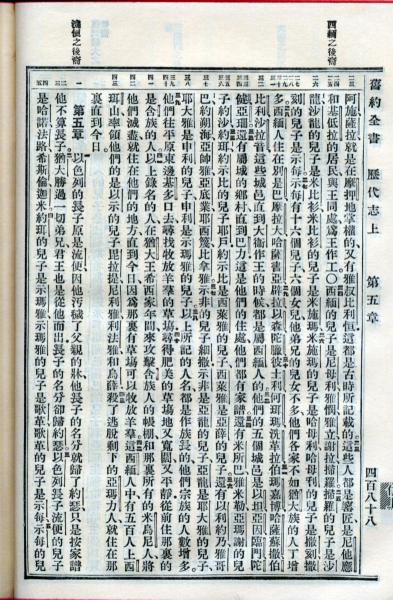 舊約全書 歷代志上 第五章 四百八十八
西緬之後裔
阿施薩拉就是在摩押地掌權的又有雅叔比利恆這都是古時所記載的這些人都是窰匠是尼他應
和基低拉的居民與王同處為王作工〇西緬的兒子是尼母利雅憫雅立謝拉掃羅掃羅的兒子是沙
龍沙龍的兒子是米比衫米比衫的兒子是米施瑪米施瑪的兒子是哈母利哈母利的兒子是撒刻撒
刻的兒子是示每示每有十六個兒子六個女兒他弟兄的兒女不多他們各家不如猶大族的人丁增
多西緬人住在別是巴摩拉大哈薩書亞辟拉以森陀臘彼土利何珥瑪洗革拉伯瑪嘉博哈薩蘇撒伯
比利沙拉音這些城邑直到大衛作王的時候都是屬西緬人的他們的五個城邑是以坦亞因臨門陀
健亞珊還有屬城的鄉村直到巴力這是他們的住處他們都有家譜還有米所巴雅米勒亞瑪謝的兒
子約沙約珥約示比的兒子耶戶約示比是西萊雅的兒子西萊雅是亞薛的兒子還有以利約乃雅哥
巴約朔海亞帥雅亞底業耶西篾比拿雅示非的兒子細撒示非是亞龍的兒子亞龍是耶大雅的兒子
耶大雅是申利的兒子申利是示瑪雅的兒子以上所記的人名都是作族長的他們宗族的人數增多
他們往平原東邊基多口去尋找牧放羊羣的草場尋得肥美的草場地又寬闊又平靜從前住那裏的
是含族的人以上錄名的人在猶大王希西家年間來攻擊含族人的帳棚和那裏所有的米烏尼人將
他們滅盡就住在他們的地方直到今日因為那裏有草場可以牧放羊羣這西緬人中有五百人上西
珥山率領他們的是以示的兒子毘拉提尼利雅利法雅和烏薛殺了逃脫剩下的亞瑪力人就住在那
裏直到今日
流便之後裔
第五章 以色列的長子原是流便因他污穢了父親的牀他長子的名分就歸了約瑟只是按家譜
他不算長子猶大勝過一切弟兄君王也是從他而出長子的名分卻歸約瑟以色列長子流便的兒子
是哈諾法路希斯倫迦米約珥的兒子是示瑪雅示瑪雅的兒子是歌革歌革的兒子是示每示每的兒